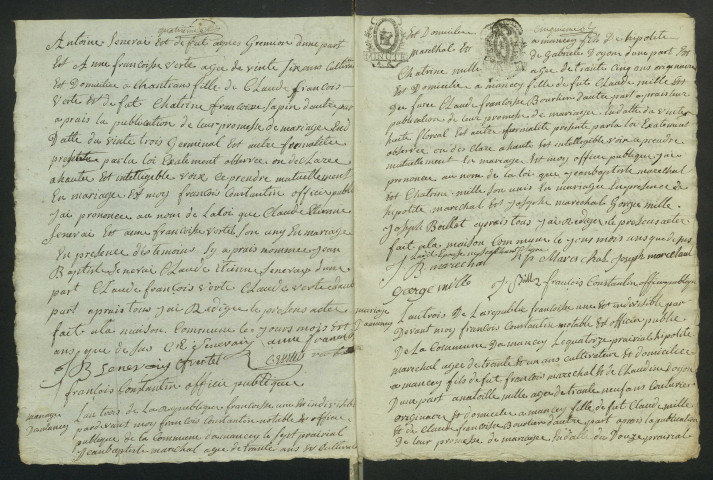 quatrieme
Antoine Senevai et de fut agnes Grenion dune part
Et Anne francoise verte agee de vente six ans cultive
Et Domicilee a chantrans fille de Claude francois
verte Et de fut Chatrine francoise Sapin dautre par
aprais la publication de leur promesse de mariage
Datte du vente trois Germinal Et autre formalitee
presente par la loi Exalement observee on declaree
a haute Et inteligible voix ce prendre mutuellement
En mariage Et moy francois Constantin officie public
J'ai prononcee au nom de la loi que Claude Etienne
Senevai Et anne francoise vertel son uny En mariage
En presence des temoins sy aprais nommee Jean
Baptiste Senevai Claude Etienne Senevay d'une
part Claude francois verte Claude verte
part aprais tous J'ai Redige le presens acter
fait a la maison Commune les Jours mois Et
ans que de sus C E Senevair anne francois
B Senevoiy C vertel
francois Constantin officie publique
mariage
Danancey
Lan trois de la Republique francoise une Et indivisible
pardevant moy francois Constantin notable Et officie
publique de la Commune damancey le sept prairial
Jeanbaptiste marchal agee de trante ans Et cultivate
Et Domicilee a mancey fils De hipolite
marechal Et de Gabriele Doyon d'une part Et
Chatrine mille agee de trante cinq ans originaire
Et Domiciliee a mancey fille de fut Claude mille Et
De fuee Claude francoise Bourdin d'autre part aprais leur
publication de leur promesse de mariage En datte du vente
huite floreal Et autre formalitee presente par la loi Exalement
observee on declare a haute Et inteligible voix a prendre
mutuellement En mariage Et moy office publique J'ai
prononcee au nom de la loi que Jeanbaptiste marechal
Et Chatrine mille son unis En mariage En presence de
hipolite marechal Et de Joseph marechal George mille
Joseph Boillot aprais tous J'ai Redige le presens acter
fait a la maison Commune le Jous mois ans que de sus
J B marechal h p Marechal Joseph marechal
george mille francois Constantin office publique
mariage
Damancey
Lan trois De La republique francoise une Et indivisible par
Devant moy francois Constantin notable Et officie public
De La Commune Damancey Le quatorze prairial hipolite
marechal agee de trante Et un ans cultivateur Et domicilee
a mancey fils de fut francois marechal Et de Claudine Doyon
D'une part anatoille mille agee de trante neuf ans Couturier
originaire Et domiciliee a mancey fille de fut Claude mille
Et de Claude francoise Bourdin d'autre part apres la publication
De leur promesse de mariage En datte du Douze prairial